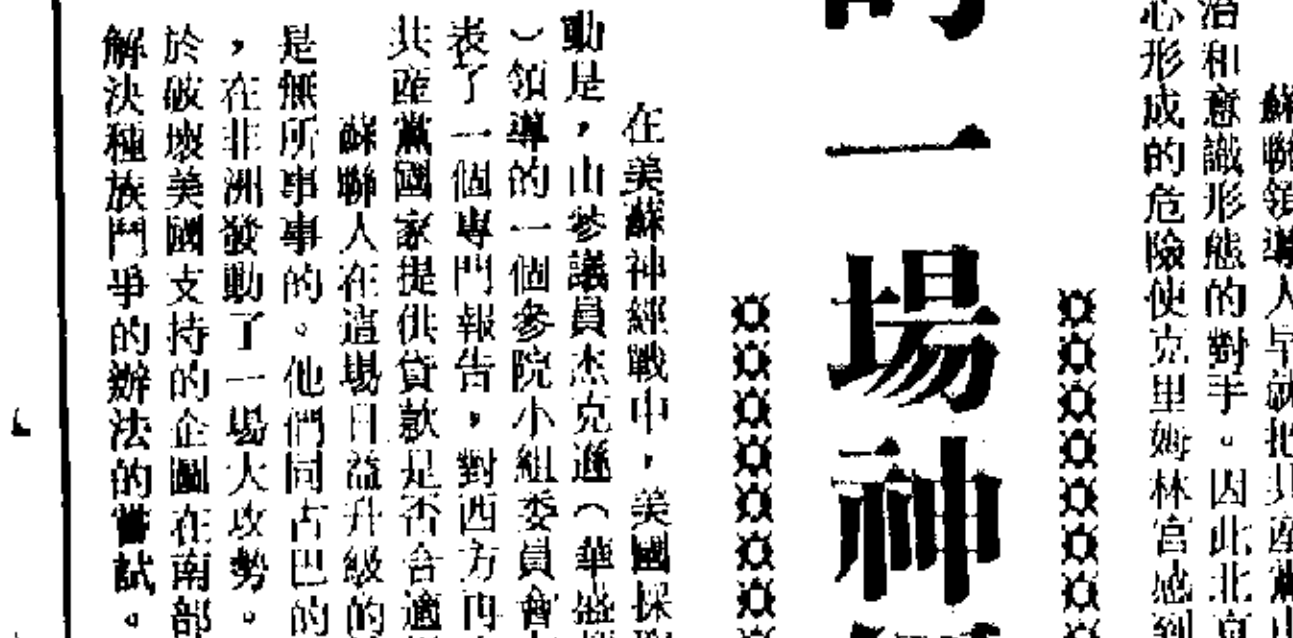 蘇聯領導人早就把共産黨
治和意識形態的對手。因此北京
心形成的危險使克里姆林宮感到
一場神
在美蘇神經戰中，美國採
動是，由參議員杰克遜（華盛
）領導的一個參院小組委員會
表了一個專門報告，對西方再
共産黨國家提供貸款是否合適
蘇聯人在這場日益升級的
是無所事事的。他們同古巴的
，在非洲發動了一場大攻勢。
於破壞美國支持的企圖在南部
解決種族鬥爭的辦法的嘗試。